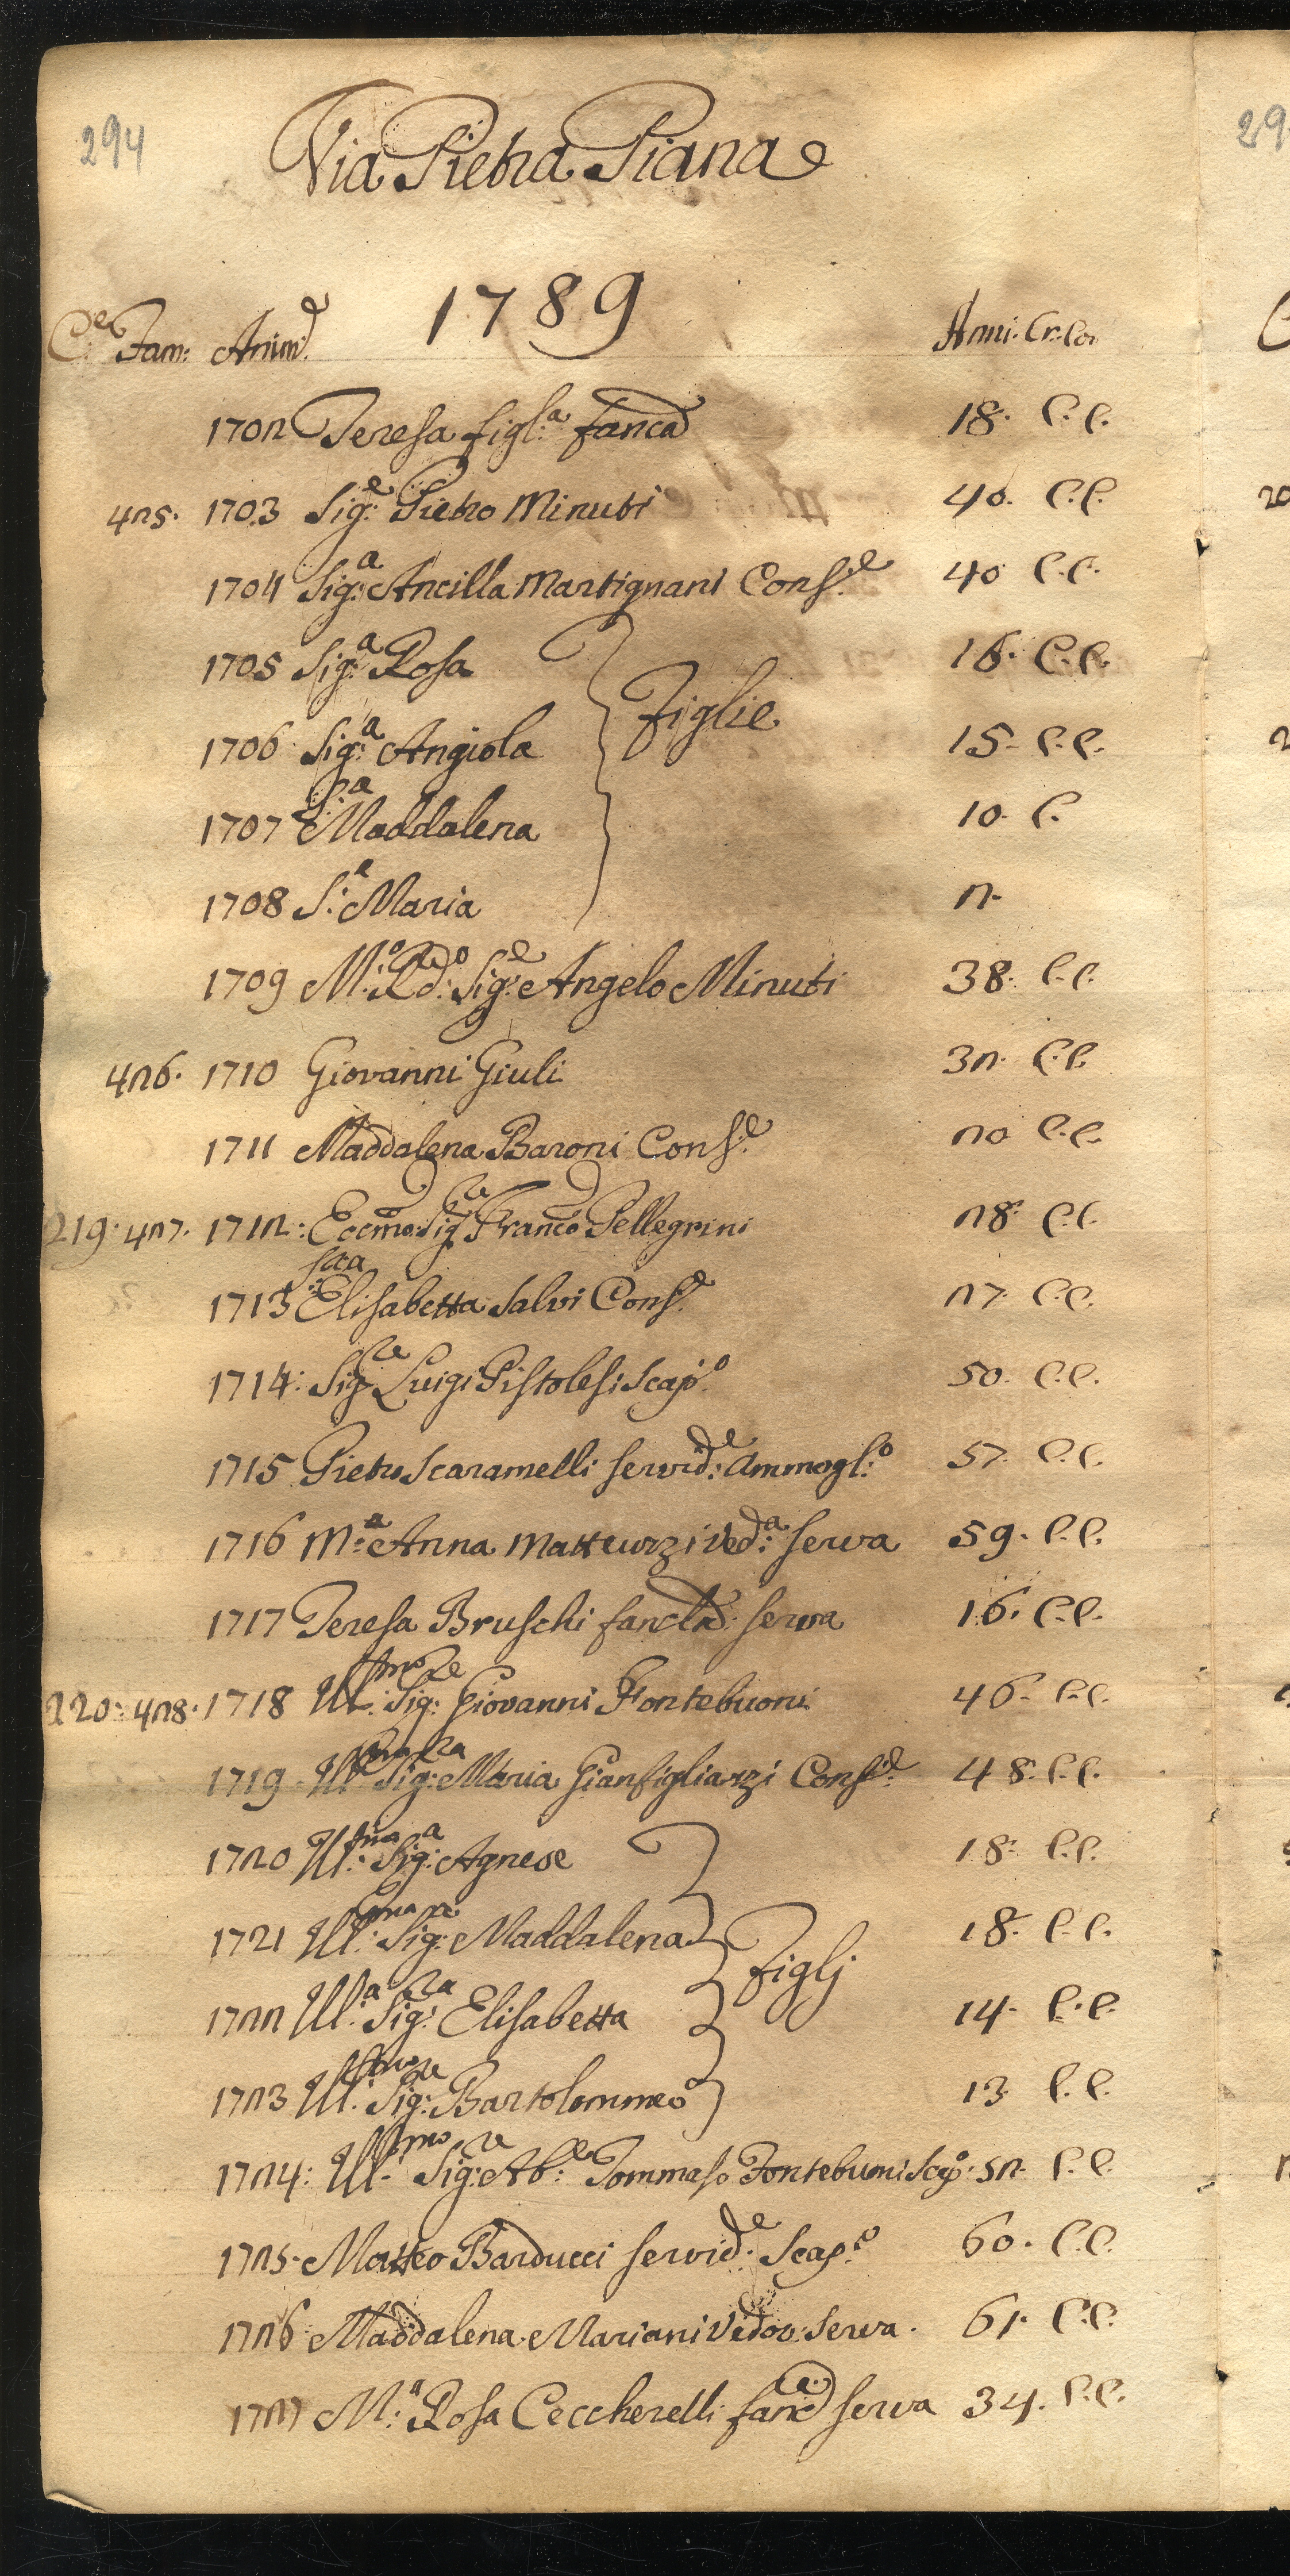 294
Via Pietra Piana
1789
C.e Fam: Anim.e Anni. Cr: Co:
1702 Teresa figl:a fanc.a 18. C. C.
425. 1703 Sig:e Pietro Minuti 40. C. C.
1704 Sig:a Ancilla Martignani Cons:e 40 C. C.
1705 Sig:a Rosa 16. C. C.
Figlie
1706 Sig:a Angiola 15. C. C.
1707 S:a Maddalena 10. C.
1708 S:a Maria 2.
1709 M:o Rd:o Sig:e Angelo Minuti 38. C. C.
426. 1710 Giovanni Giuli 32. C. C.
1711 Maddalena Baroni Cons:e 20 C. C.
219. 427. 1712: Eccmo: Sig:re Franco Pellegrini 28. C. C.
1713 Sra Elisabetta Salvi Cons:e 27. C. C.
1714: Sig:re Luigi Pistolesi Scap:o 50. C. C.
1715 Pietro Scaramelli servid:e Ammogl:o 57. C. C.
1716 M:a Anna Matteuzzi Ved:a serva 59. C. C.
1717 Teresa Bruschi fancla: serva 16. C. C.
220: 428. 1718 Ill:mo Sig:re Giovanni Fontebuoni 46. C. C.
1719 Ill:ma Sig:ra Maria Gianfigliazzi Cons:e 48. C. C.
1720 Ill:ma Sig:a Agnese 18. C. C.
1721 Ill:ma Sig:ra Maddalena 18. C. C.
Figlj
1722 Ill:a Sig:ra Elisabetta 14. C. C.
1723 Ill:mo Sig:re Bartolommeo 13. C. C.
1724: Ill:mo Sig:re Ab:e Tommaso Fontebuoni Scap:o 52. C. C.
1725. Matteo Barducci servid:e Scap:o 60. C. C.
1726 Maddalena Mariani Vedov: Serva. 61. C. C.
1727 M:a Rosa Ceccherelli fanc:a serva 34. C. C.